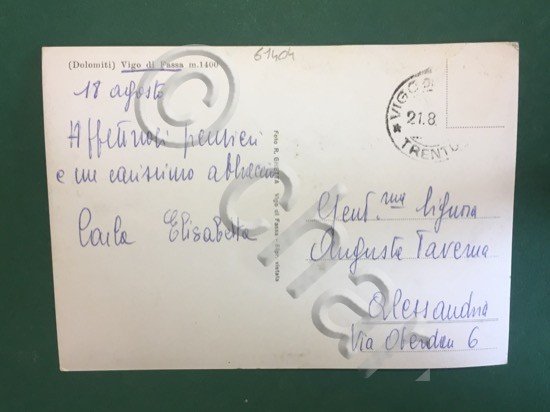 61404
(Dolomiti) Vigo di Fassa m.1400
18 agosto
Affettuosi pensieri
e un carissimo abbraccio
Carla Elisabetta
Foto R. Vigo di Fassa - Ripr. vietata
VIGO DI
21.8
TRENTO
Gent.ma Signora
Augusta Taverna
Alessandria
Via Oberdan 6